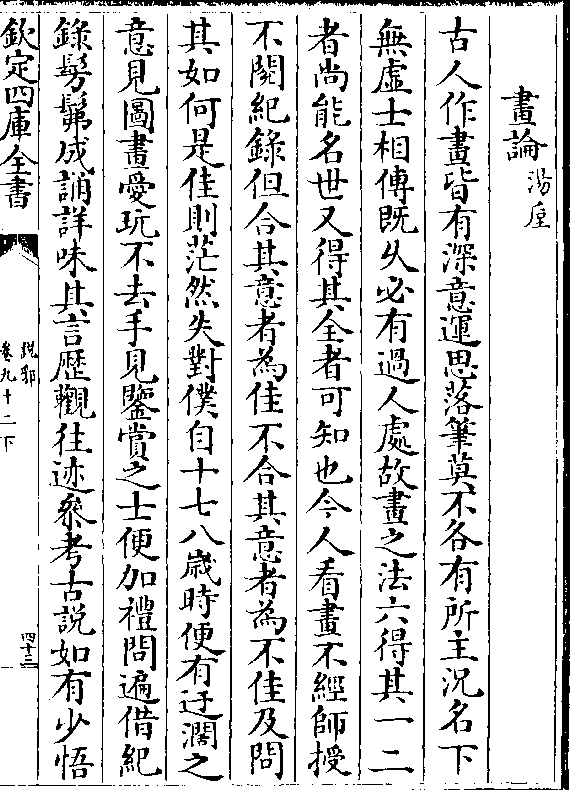 畫論湯垕
古人作畫皆有深意運思落筆莫不各有所主況名下
無虛士相傳既久必有過人處故畫之法六得其一二
者尚能名世又得其全者可知也今人看畫不經師授
不閱紀錄但合其意者為佳不合其意者為不佳及問
其如何是佳則茫然失對僕自十七八歲時便有迂濶之
意見圖畫愛玩不去手見鑒賞之士便加禮問遍借紀
錄髣髴成誦詳味其言歴觀往迹參考古説如有少悟
欽定四庫全書
説郛
卷九十二下
四十三